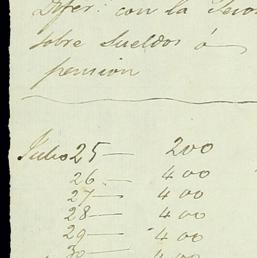 Difer: con la Teso
sobre sueldos ó
pension
Julio 25 — 200
26 — 400
27 — 400
28 — 400
29 — 400
30 — 400